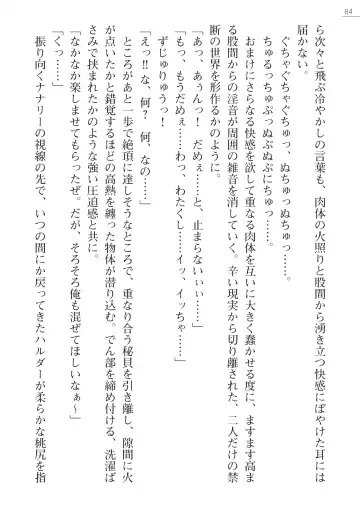 84
ら次々と飛ぶ冷やかしの言葉も、肉体の火照りと股間から湧き立つ快感にぼやけた耳には
届かない。
ぐちゃぐちゃぐちゅっ、ぬちゅっぬちゅっ……。
ちゅるっちゅぷっぬぷぬぷにちゅっ……。
おまけにさらなる快感を欲して重なる肉体を互いに大きく蠢かせる度に、ますます高ま
る股間からの淫音が周囲の雑音を消していく。辛い現実から切り離された、二人だけの禁
断の世界を形作るかのように。
「あっ、あぅんっ！　だめぇ……と、止まらないぃぃ……」
「もっ、もうだめぇ……わっ、わたくし……イッ、イッちゃ……」
ずじゅりゅうっ！
「えっ!!　な、何？　何、なの……」
ところがあと一歩で絶頂に達しそうなところで、重なり合う秘貝を引き離し、隙間に火
が点いたかと錯覚するほどの高熱を纏った物体が潜り込む。でん部を締め付ける、洗濯ば
さみで挟まれたかのような強い圧迫感と共に。
「なかなか楽しませてもらったぜ。だが、そろそろ俺も混ぜてほしいなぁ～」
「くっ……」
振り向くナナリーの視線の先で、いつの間にか戻ってきたハルダーが柔らかな桃尻を指